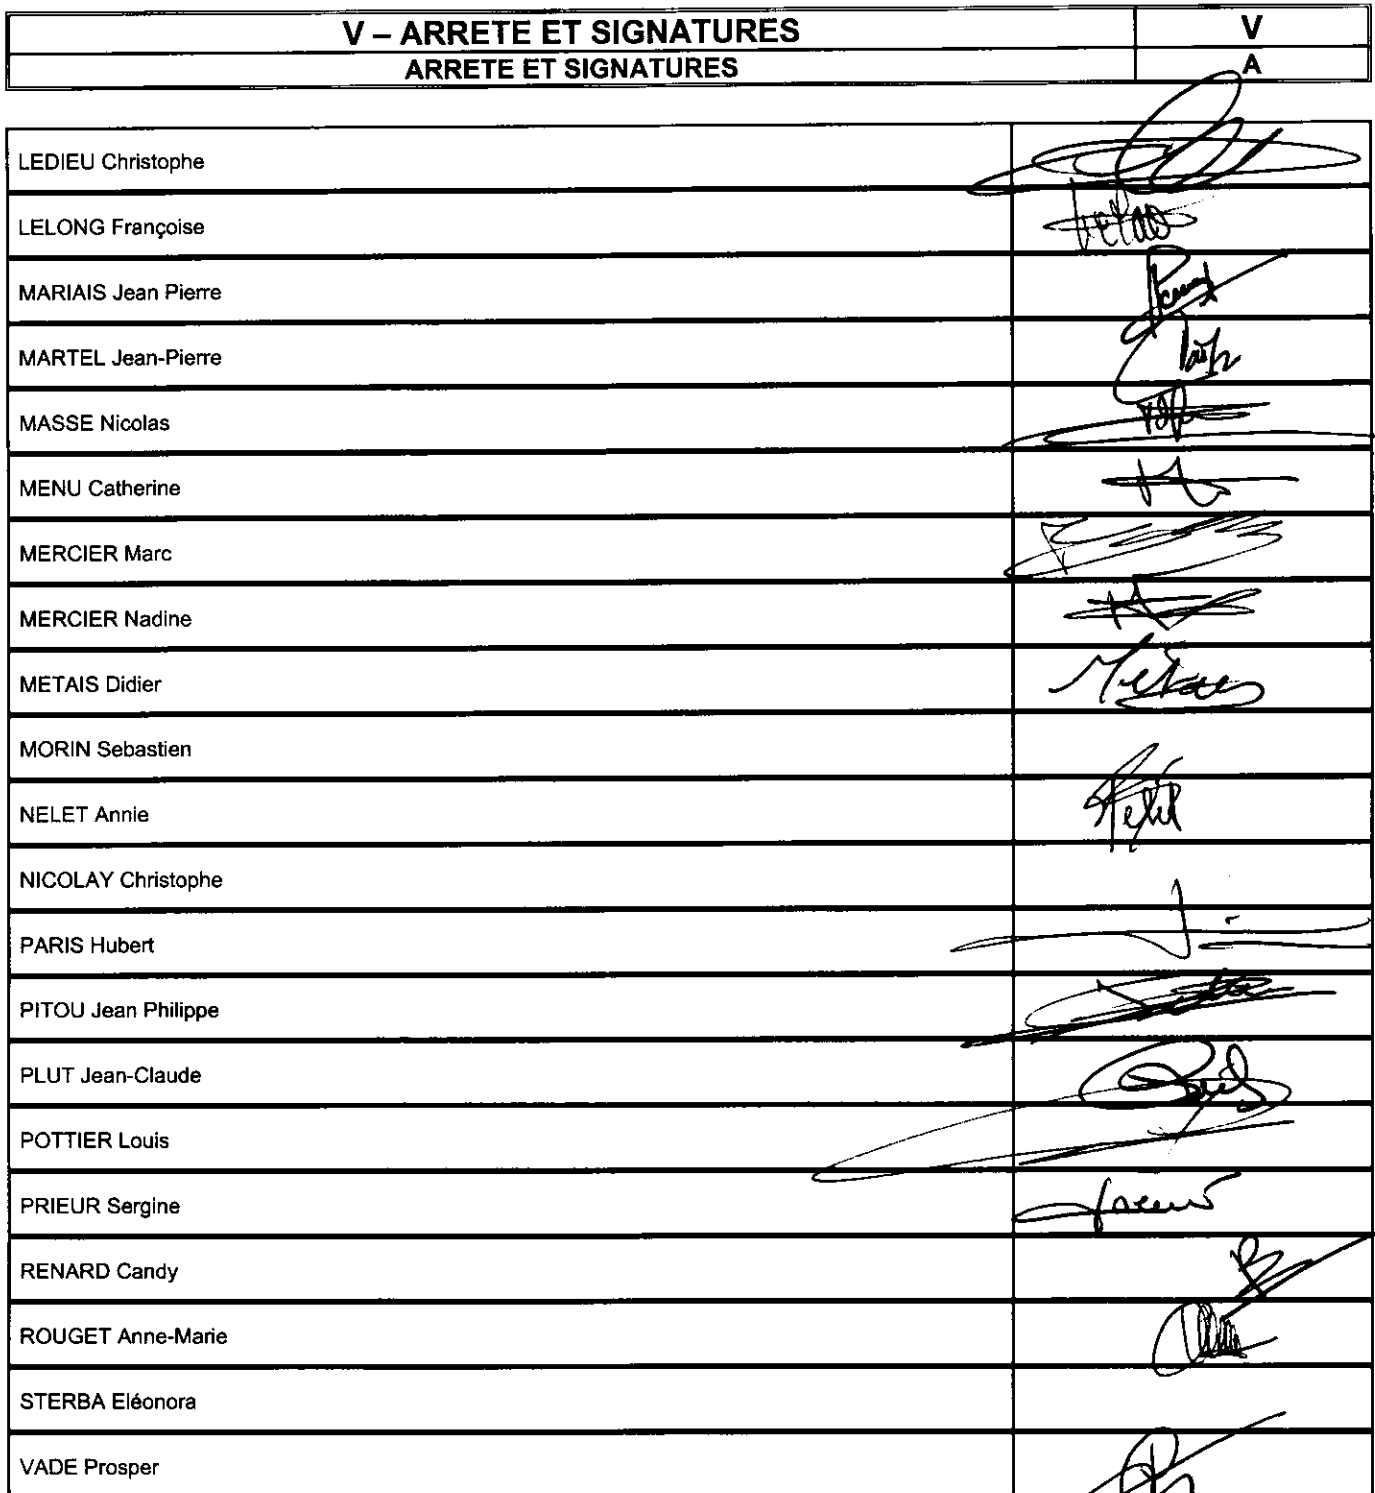 V – ARRETE ET SIGNATURES V
ARRETE ET SIGNATURES A
LEDIEU Christophe
LELONG Françoise
MARIAIS Jean Pierre
MARTEL Jean-Pierre
MASSE Nicolas
MENU Catherine
MERCIER Marc
MERCIER Nadine
METAIS Didier
MORIN Sebastien
NELET Annie
NICOLAY Christophe
PARIS Hubert
PITOU Jean Philippe
PLUT Jean-Claude
POTTIER Louis
PRIEUR Sergine
RENARD Candy
ROUGET Anne-Marie
STERBA Eléonora
VADE Prosper